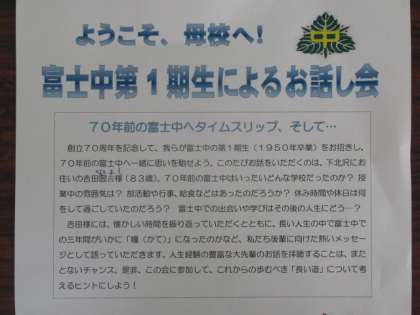 ようこそ、母校へ!
中
富士中第1期生によるお話し会
70年前の富士中へタイムスリップ、そして…
創立70周年を記念して、我らが富士中の第1期生(1950年卒業)をお招きし、
70年前の富士中へ一緒に思いを馳せよう。このたびお話をいただくのは、下北沢にお
住いの吉田 様(83歳)。70年前の富士中はいったいどんな学校だったのか?
授業中の雰囲気は? 部活動や行事、給食などはあったのだろうか? 休み時間や休日は何
をして過ごしていたのだろう? 富士中での出会いや学びはその後の人生にどう…?
吉田様には、懐かしい時間を振り返っていただくとともに、長い人生の中で富士中で
の三年間がいかに「糧(かて)」になったのかなど、私たち後輩に向けた熱いメッセー
ジとして語っていただきます。人生経験の豊富な大先輩のお話を拝聴することは、また
とないチャンス。是非、この会に参加して、これからの歩むべき「長い道」について考
えるヒントにしよう!